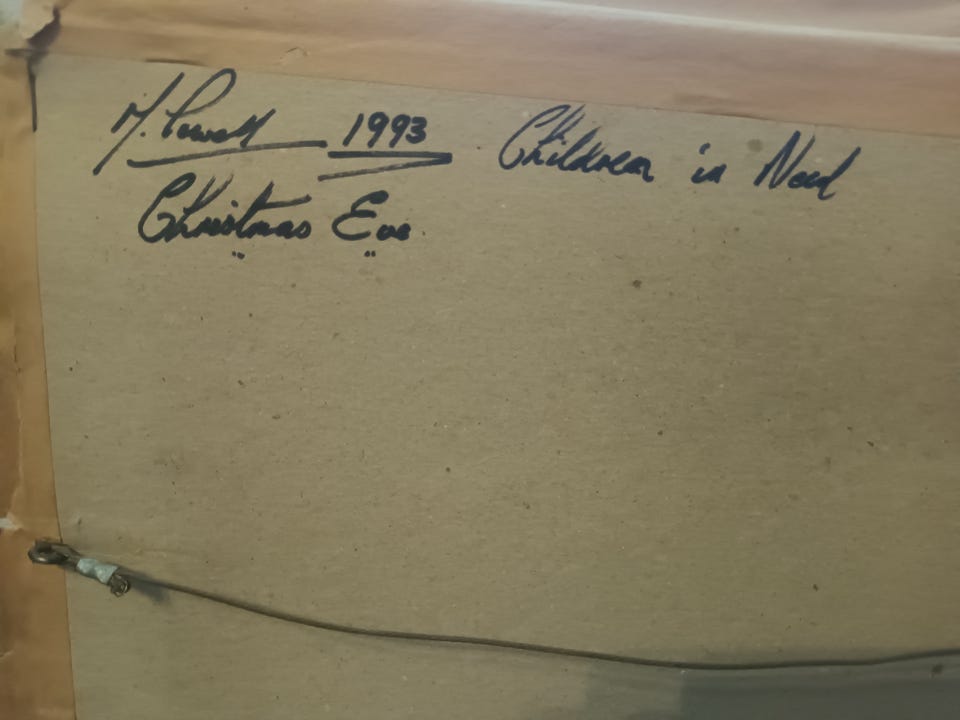 M. Powell 1993 Children in Need
Christmas Eve